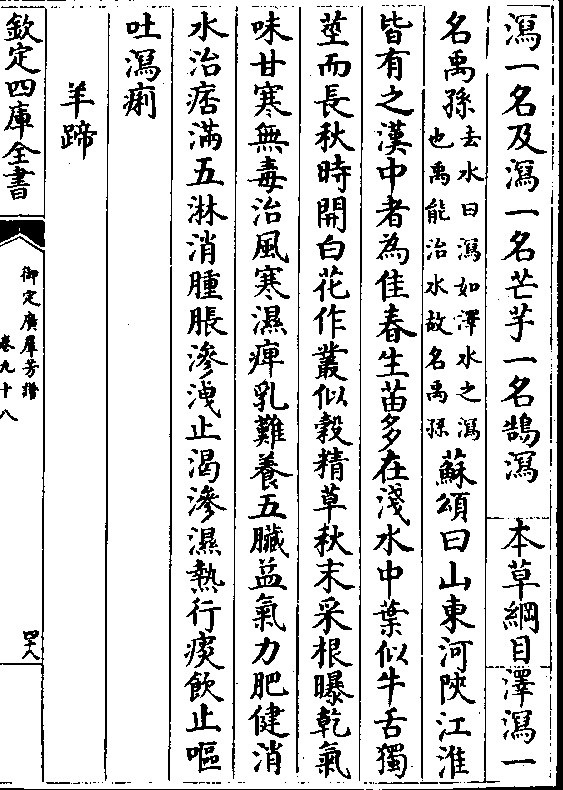 瀉一名及瀉一名芒芋一名鵠瀉 本草綱目澤瀉一
名禹孫去水曰瀉如澤水之瀉
也禹能治水故名禹孫蘇頌曰山東河陜江淮
皆有之漢中者為佳春生苗多在淺水中葉似牛舌獨
莖而長秋時開白花作叢似榖精草秋末采根曝乾氣
味甘寒無毒治風寒濕痺乳難養五臟益氣力肥健消
水治痞滿五淋消腫脹滲洩止渴滲濕熱行痰飲止嘔
吐瀉痢
羊蹄
欽定四庫全書
御定廣羣芳譜
卷九十八
四八